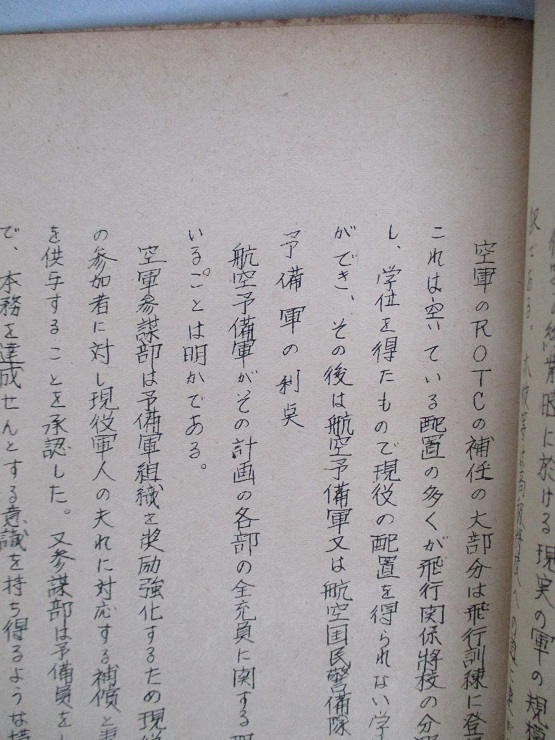 空軍のROTCの補任の大部分は飛行訓練に登
これは空いている配置の多くが飛行関係将校の分
し、学位を得たもので現役の配置を得られない学
ができ、その後は航空予備軍又は航空国民警備隊
予備軍の利点
航空予備軍がその計画の各部の全充員に関する
いることは明かである。
空軍参謀部は予備軍組織を奨励強化するため現役
の参加者に対し現役軍人の夫れに対応する補償と
を供与することを承認した。又参謀部は予備員をし
で、本務を達成せんとする意識を持ち得るような